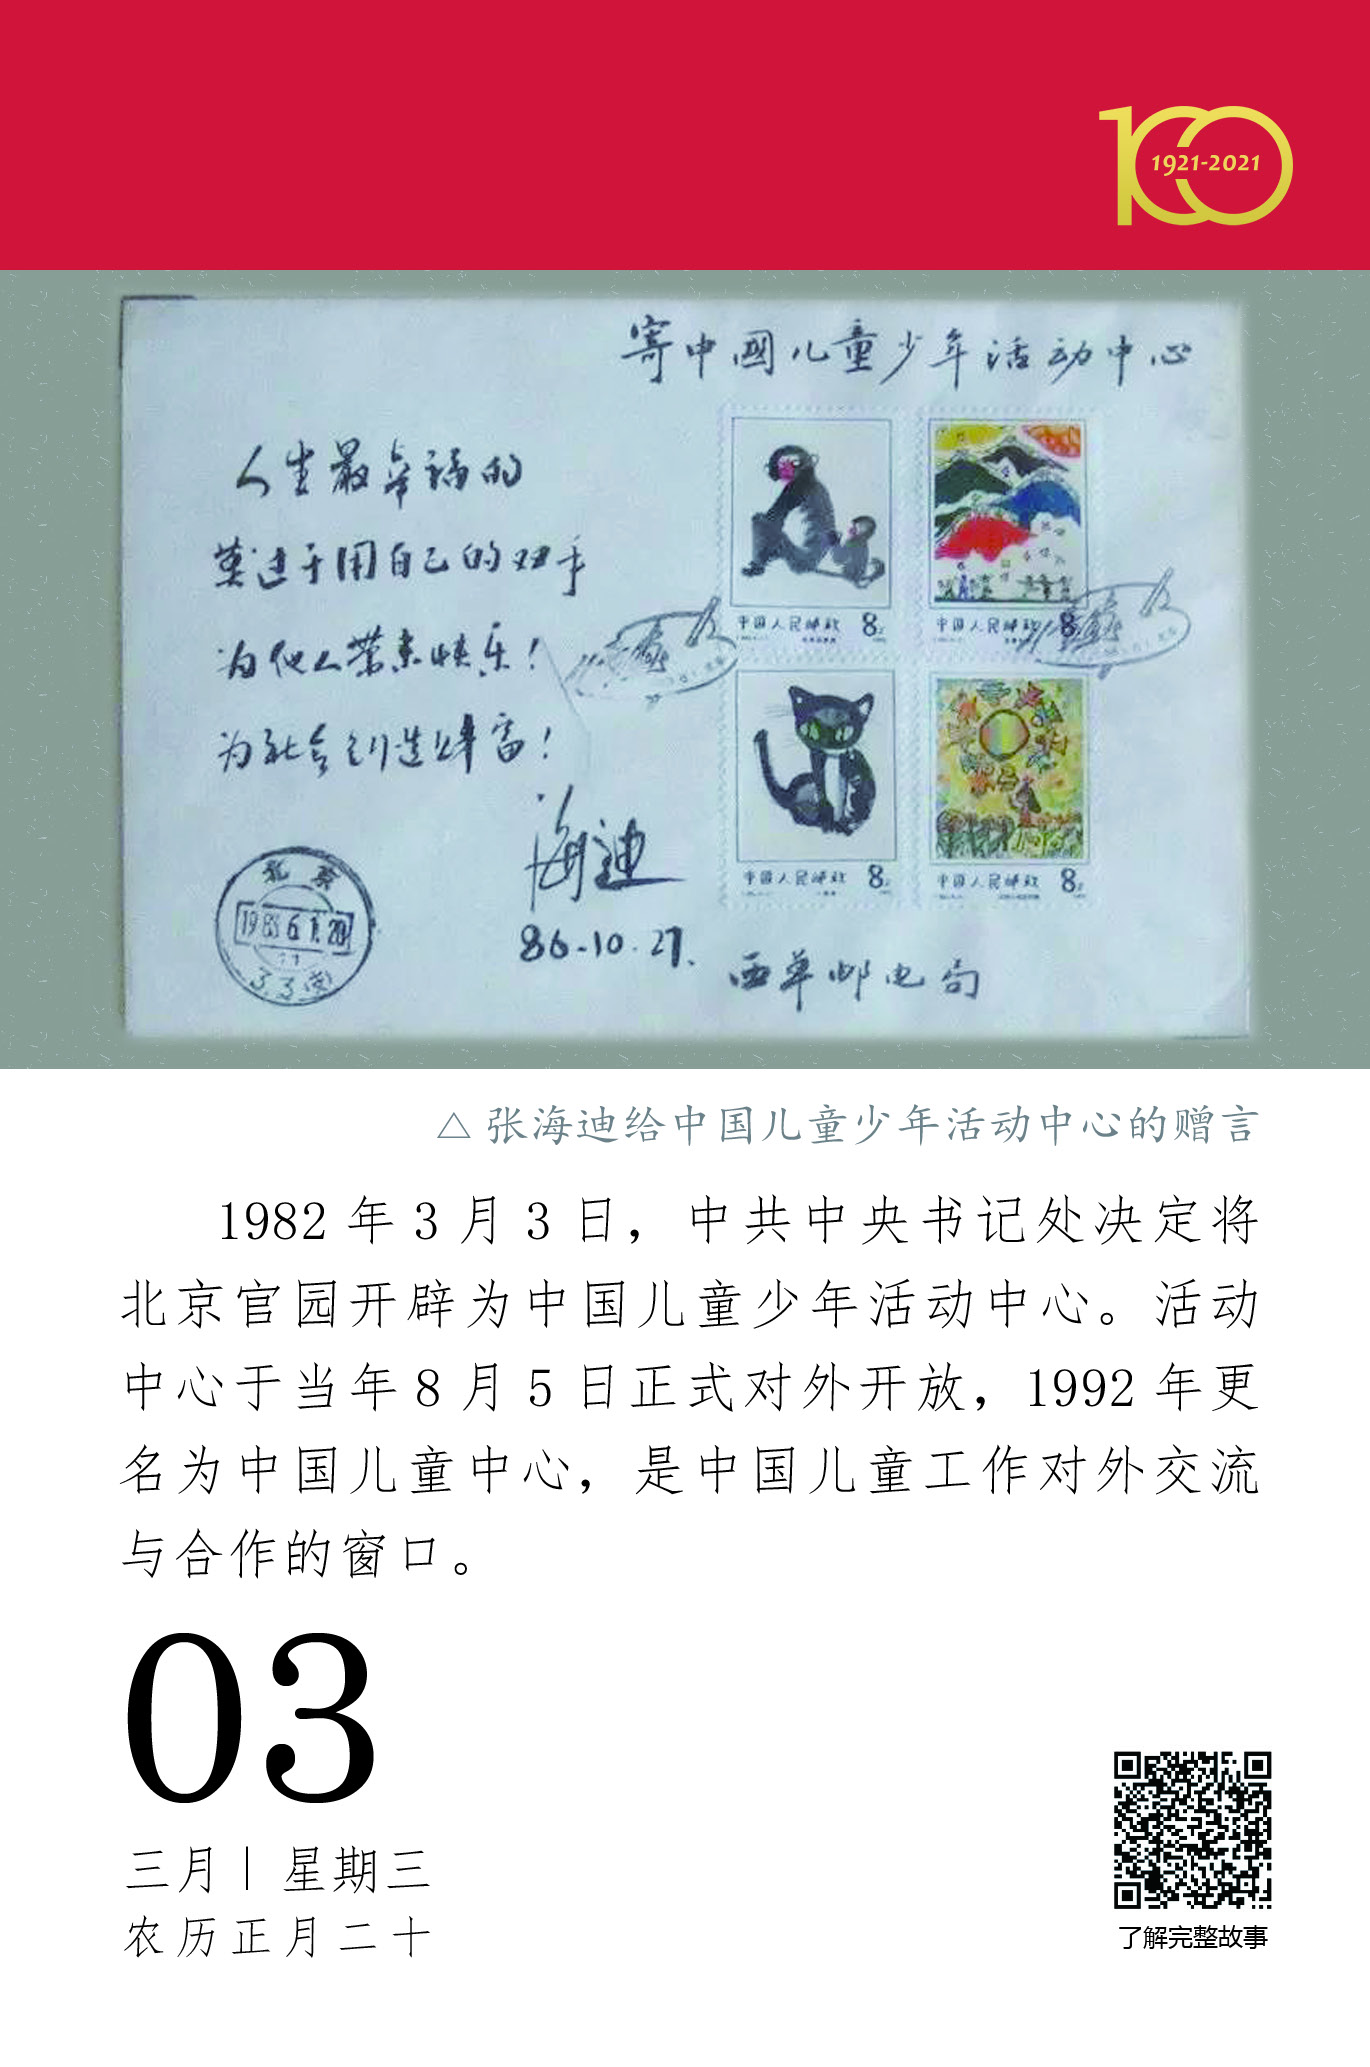 1921-2021
寄中國儿童少年活动中心
人生最幸福的
莫过于用自己的双手
为他人带来快乐！
为社会创造财富！
海迪
86-10.27.
中国人民邮政 8分
中国人民邮政 8分
中国人民邮政 8分
中国人民邮政 8分
北京
西单邮电局
△ 张海迪给中国儿童少年活动中心的赠言
1982 年 3 月 3 日，中共中央书记处决定将
北京官园开辟为中国儿童少年活动中心。活动
中心于当年 8 月 5 日正式对外开放，1992 年更
名为中国儿童中心，是中国儿童工作对外交流
与合作的窗口。
03
三月｜星期三
农历正月二十
了解完整故事